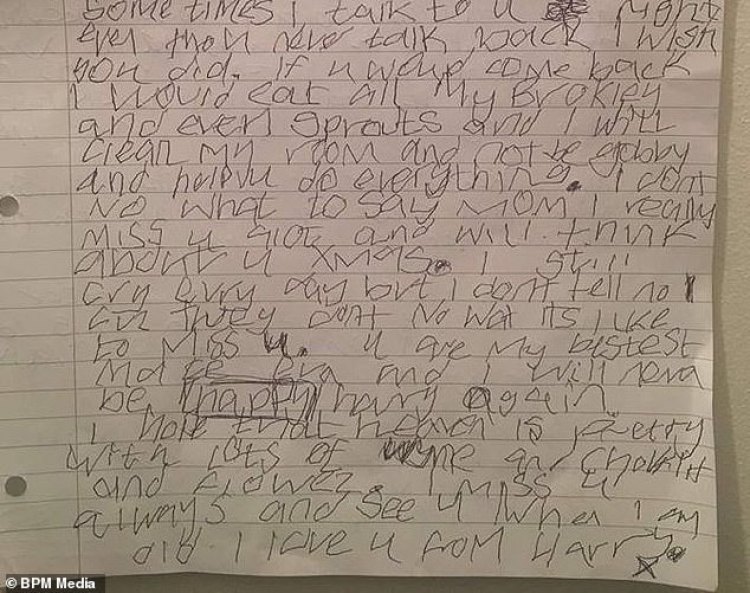 some times I talk to u night
even thou never talk back I wish
you did. If u would come back
I would eat all my Brokley
and even sprouts and I will
clean my room and not be gobby
and help u do everything. I dont
No what to say Mom I really
miss u alot and will think
about u xmas. I still
cry evry day but I dont tell no 1
cuz they dont No wot its like
to miss u. u are my bestest
mate eva and I will neva
be happy harry again
I hope that heaven is pretty
with lots of wine and choklit
and flowez. I miss u
always and see u when I am
old. I love u from Harry.
x
BPM Media